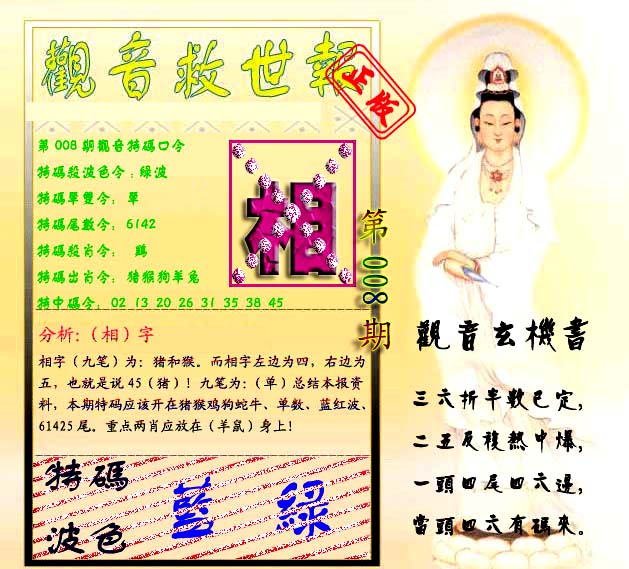 觀音救世報
正版
第008期觀音特碼口令
特碼殺波色令：綠波
特碼單雙令： 單
特碼尾數令： 6142
特碼殺肖令： 鷄
特碼出肖令： 猪猴狗羊兔
特中碼令： 02 13 20 26 31 35 38 45
相
第008期
分析:（相）字
相字（九笔）为：猪和猴。而相字左边为四，右边为
五，也就是说45（猪）！九笔为:（单）总结本报资
料，本期特码应该开在猪猴鸡狗蛇牛、单数、蓝红波、
61425尾。重点两肖应放在（羊鼠）身上！
特碼
波色
藍 綠
觀音玄機書
三六折半數已定,
二五反複熱中爆,
一頭四尾四六邊,
當頭四六有碼來。